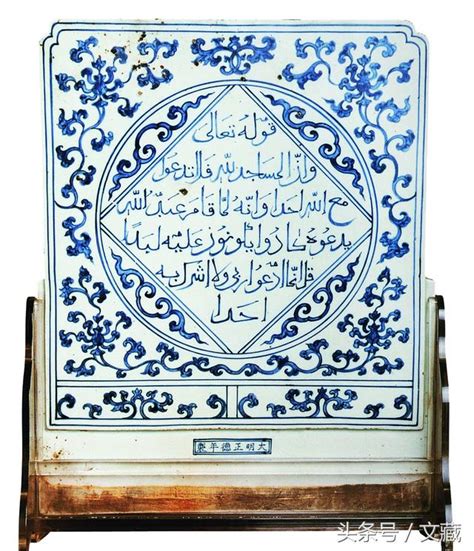 قوله تعالى
وان المساجد لله فلا تدعوا
مع الله احدا وانه لما قام عبد الله
يدعوه كادوا يكونون عليه لبدا
قل انما ادعوا ربي ولا اشرك به
احدا
大明正德年製
头条号 / 文藏